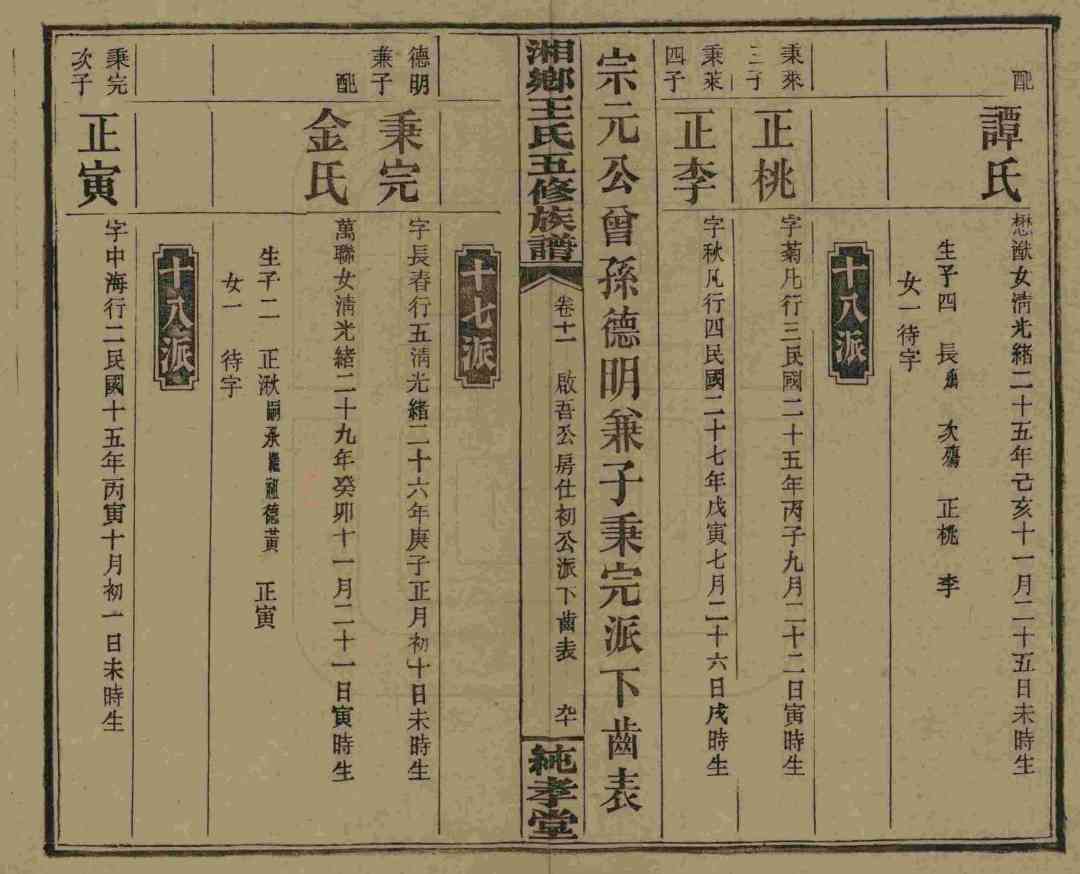 配
譚氏
懋猷女清光緒二十五年己亥十一月二十五日未時生
生子四 長殤 次殤 正桃 李
女一待字
十八派
秉來
三子
正桃
字菊凡行三民國二十五年丙子九月二十二日寅時生
秉萊
四子
正李
字秋凡行四民國二十七年戊寅七月二十六日戌時生
宗元公曾孫德明兼子秉完派下齒表
湘鄉王氏五修族譜
卷十一
啟吾公房仕初公派下齒表
卆
純孝堂
十七派
德明
兼子
秉完
字長春行五清光緒二十六年庚子正月初十日未時生
配
金氏
萬聯女清光緒二十九年癸卯十一月二十一日寅時生
生子二 正湫嗣承繼祖德黃 正寅
女一 待字
十八派
秉完
次子
正寅
字中海行二民國十五年丙寅十月初一日未時生